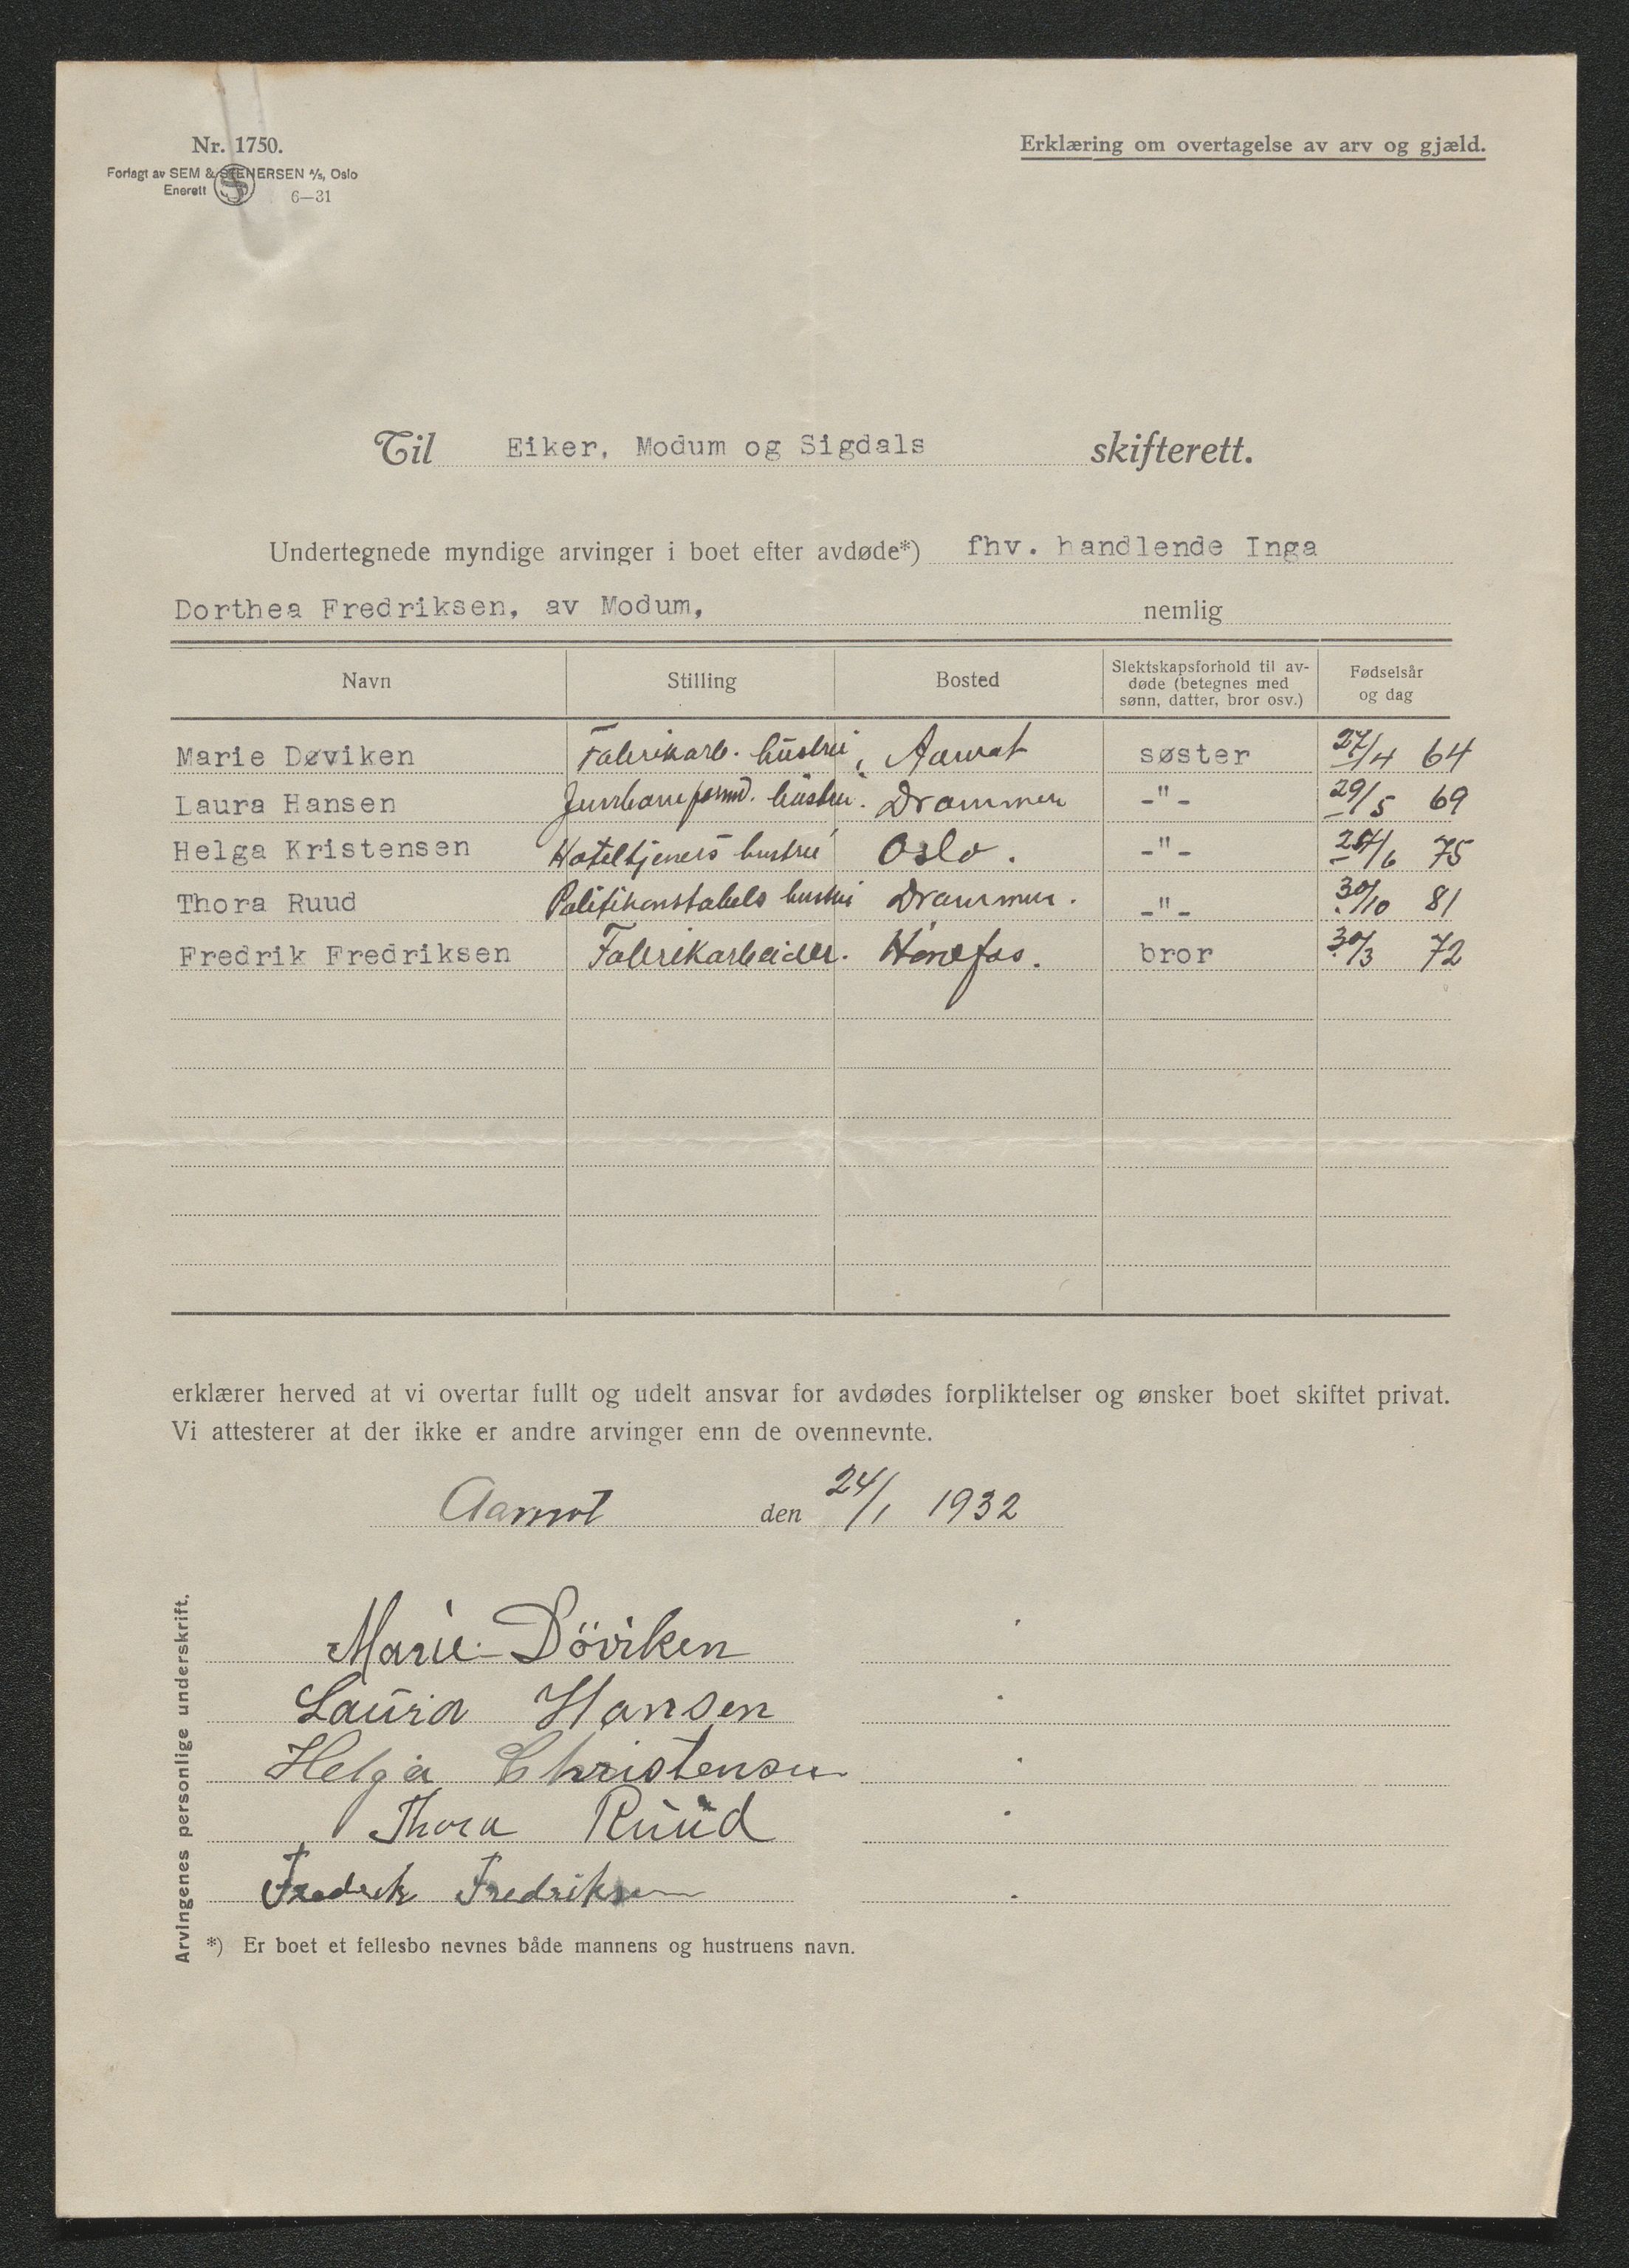 Nr. 1750.
Forlagt av SEM & STENERSEN A/s, Oslo
Enerett 6—31
Erklæring om overtagelse av arv og gjæld.
Til Eiker, Modum og Sigdals skifterett.
Undertegnede myndige arvinger i boet efter avdøde*) fhv. handlende Inga
Dorthea Fredriksen, av Modum, nemlig
Navn Stilling Bosted Slektskapsforhold til av-
døde (betegnes med
sønn, datter, bror osv.) Fødselsår
og dag
Marie Døviken Fabrikarb. hustru, Aamot søster 27/4 64
Laura Hansen Jernbaneformd. hustru. Drammen -"- 29/5 69
Helga Kristensen Hoteltjeners hustru Oslo. -"- /6 75
Thora Ruud Politikonstabels hustru Drammen. -"- 30/10 81
Fredrik Fredriksen Fabrikarbeider. Hönefos. bror 30/3 72
erklærer herved at vi overtar fullt og udelt ansvar for avdødes forpliktelser og ønsker boet skiftet privat.
Vi attesterer at der ikke er andre arvinger enn de ovennevnte.
Aamot den 24/1 1932
Arvingenes personlige underskrift.
Marie Döviken
Laura Hansen
Helga Christensen
Thora Ruud
Fredrik Fredriksen
*) Er boet et fellesbo nevnes både mannens og hustruens navn.